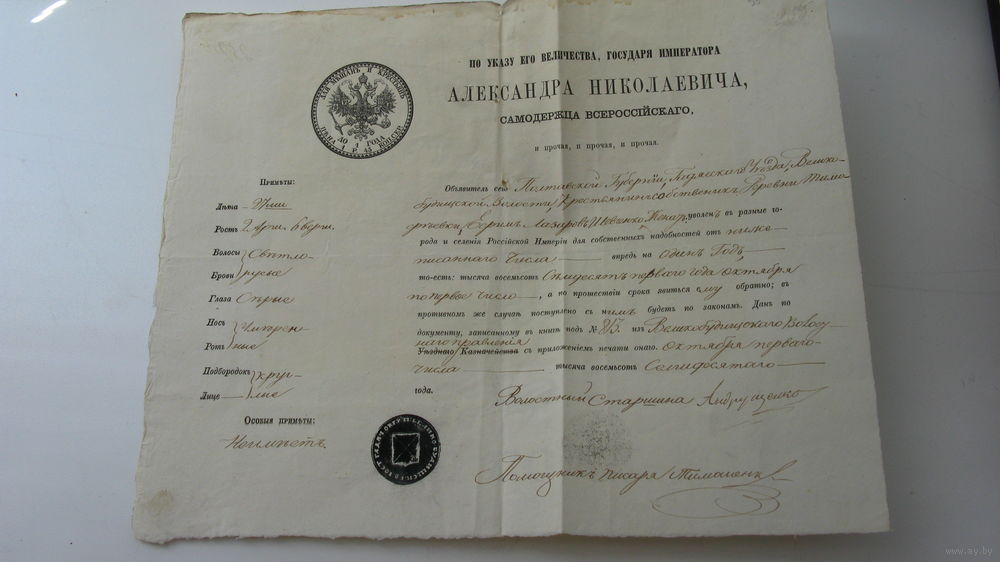 ДЛЯ МѢЩАНЪ И КРЕСТЬЯНЪ
ЦѢНА 1 Р. 45 КОП. СЕР.
ДО 1 ГОДА
ПО УКАЗУ ЕГО ВЕЛИЧЕСТВА, ГОСУДАРЯ ИМПЕРАТОРА
АЛЕКСАНДРА НИКОЛАЕВИЧА,
САМОДЕРЖЦА ВСЕРОССІЙСКАГО,
и прочая, и прочая, и прочая.
Примѣты:
Лѣта
Ростъ 2 арш. 6 верш.
Волосы Свѣтло
Брови русые
Глаза Сѣрые
Носъ умѣрен
Ротъ ные
Подбородокъ круг
Лице лые
Особыя примѣты:
Неимѣетъ
Объявитель сего Полтавской Губерніи, Гадяскаго Уѣзда, Велико
будищской Волости, Крестьянинъ собственникъ Деревни Тимо
Ефимъ Лазаровъ Шевченко уволенъ въ разные го-
рода и селенія Россійской Имперіи для собственныхъ надобностей отъ ниже
писаннаго числа впредь на одинъ Годъ
то-есть: тысяча восемьсотъ Семидесятъ перваго года октября
по первое число, а по прошествіи срока явиться ему обратно; въ
противномъ же случаѣ поступлено съ нимъ будетъ по законамъ. Данъ по
документу, записанному въ книгѣ подъ № 85. изъ Великобудищскаго Волос
наго правленія
Уѣзднаго Казначейства съ приложеніемъ печати онаго. октября перваго
числа тысяча восемьсотъ Семидесятаго
года.
Волостный Старшина Андрущенко
Помощникъ писаря Тимошенк
www.ay.by